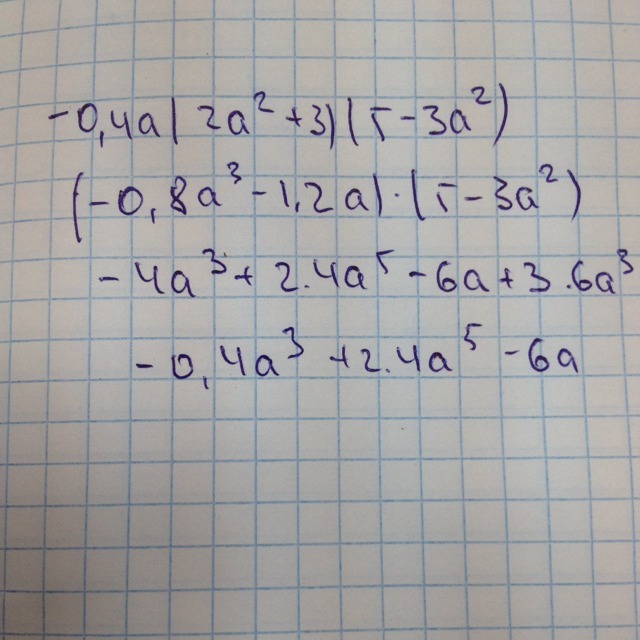 -0,4a(2a² +3)(5-3a²)
(-0,8a³-1,2a)·(5-3a²)
-4a³+2.4a⁵-6a+3.6a³
-0,4a³ +2.4a⁵ -6a